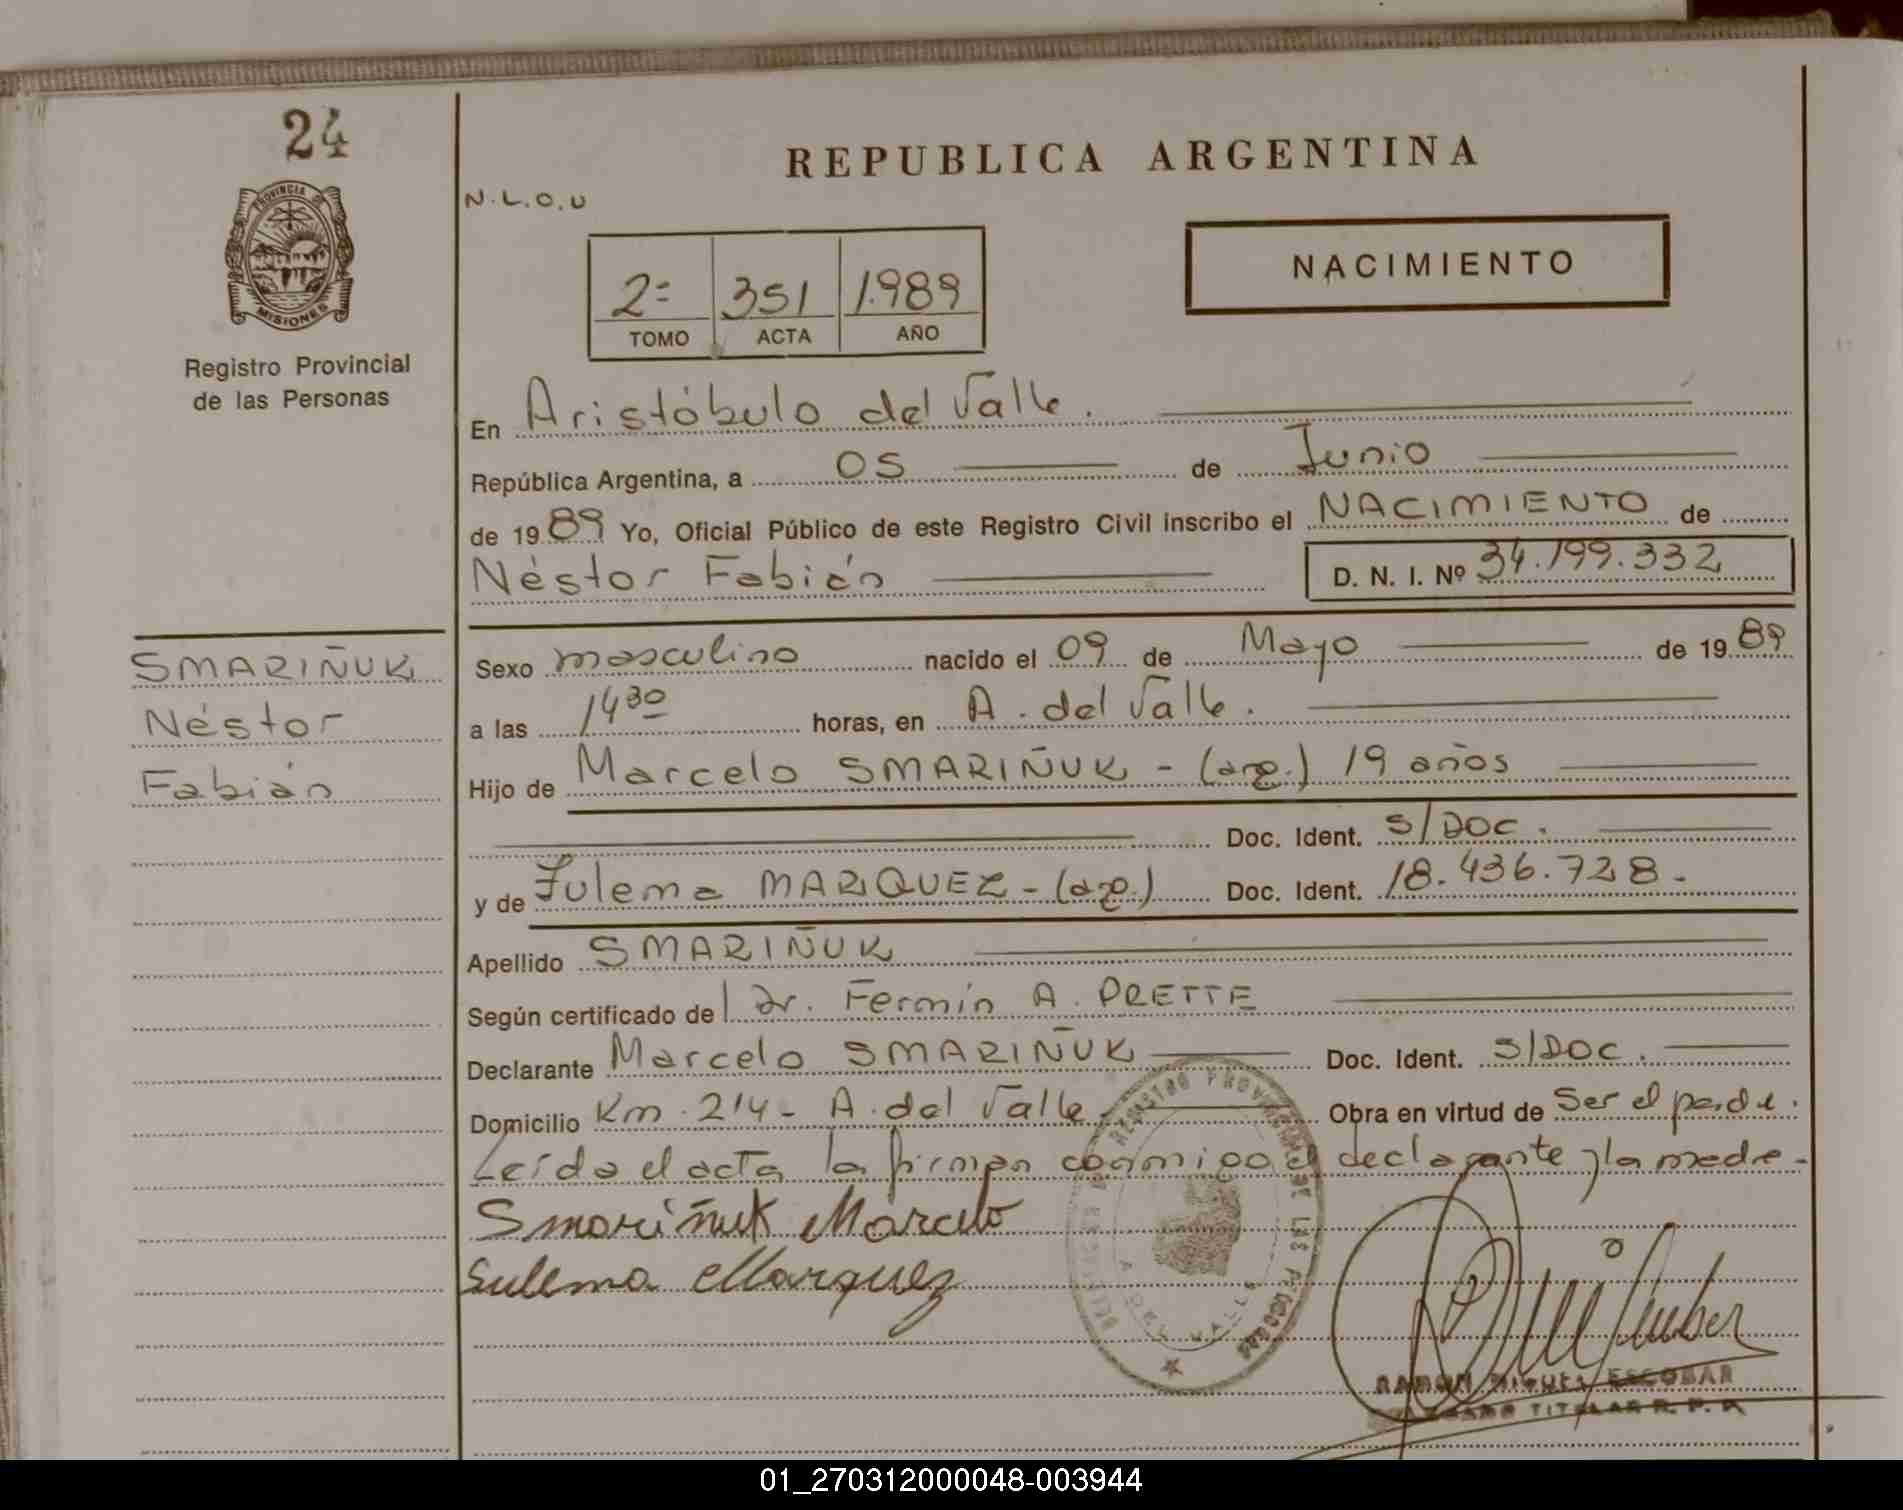 24
PROVINCIA DE
MISIONES
Registro Provincial
de las Personas
REPUBLICA ARGENTINA
N.L.O.U
NACIMIENTO
2= 351 1.989
TOMO ACTA AÑO
En Aristóbulo del Valle.
República Argentina, a 05 de Junio
de 1989 Yo, Oficial Público de este Registro Civil inscribo el NACIMIENTO de
Néstor Fabián D. N. I. Nº 34.199.332
SMARIÑUK
Néstor
Fabián
Sexo masculino nacido el 09 de Mayo de 1989
a las 14 30 horas, en A. del Valle.
Hijo de Marcelo SMARIÑUK - (arg.) 19 años
Doc. Ident. S/DOC.
y de Zulema MARQUEZ - (arg.) Doc. Ident. 18.436.728.-
Apellido SMARIÑUK
Según certificado de Dr. Fermín A. PRETTE
Declarante Marcelo SMARIÑUK Doc. Ident. S/DOC.
Domicilio Km. 214 - A. del Valle. Obra en virtud de Ser el padre.
Leída el acta la firman conmigo el declarante y la madre.-
Smariñuk Marcelo
Sulema Marquez
REGISTRO PROVINCIAL DE LAS PERSONAS
A. DEL VALLE
RAMON MIGUEL ESCOBAR
TITULAR R. P. P.
01_270312000048-003944